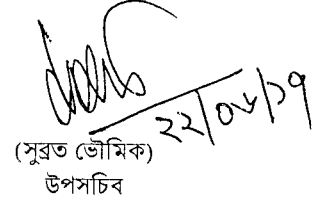 ২২/০৮/১৭
(সুব্রত ভৌমিক)
উপসচিব